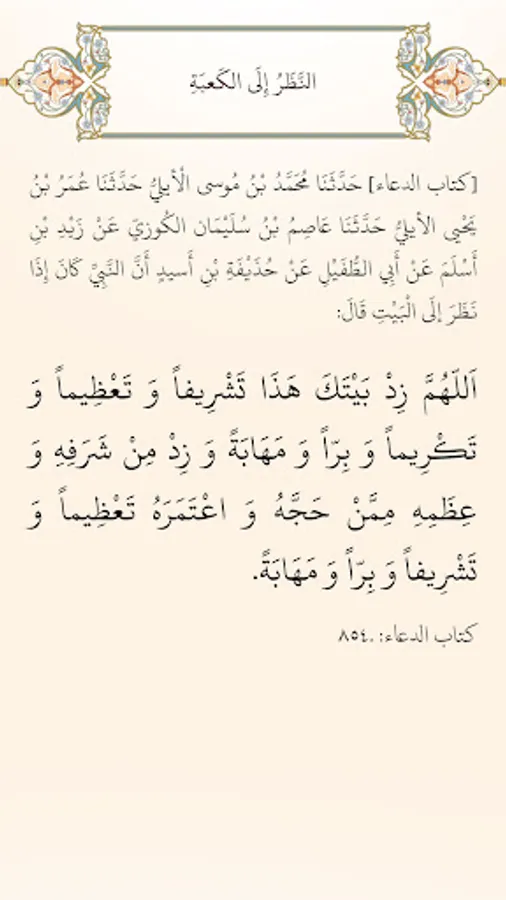 النَّظَرُ إِلَى الكَعبَةِ
[كتاب الدعاء] حَدَّثَنَا مُحَمَّدُ بْنُ مُوسى الْأَيلِيُّ حَدَّثَنَا عُمَرُ بْنُ
يَحْيى الأيليُّ حَدَّثَنَا عَاصِمُ بْنُ سُلَيْمَان الكُوزيّ عَنْ زَيْدِ بْنِ
أَسْلَمَ عَنْ أَبِي الطُّفَيْلِ عَنْ حُذَيْفَةِ بْنِ أَسيدٍ أَنَّ النَّبِيَّ كَانَ إِذَا
نَظَرَ إلَى الْبَيْتِ قَالَ:
اَللّهُمَّ زِدْ بَيْتَكَ هَذَا تَشْرِيفاً وَ تَعْظِيماً وَ
تَكْرِيماً وَ بِرّاً وَ مَهَابَةً وَ زِدْ مِنْ شَرَفِهِ وَ
عِظَمِهِ مِمَّنْ حَجَّهُ وَ اعْتَمَرَهُ تَعْظِيماً وَ
تَشْرِيفاً وَ بِرّاً وَ مَهَابَةً.
كتاب الدعاء: ٨٥٤.